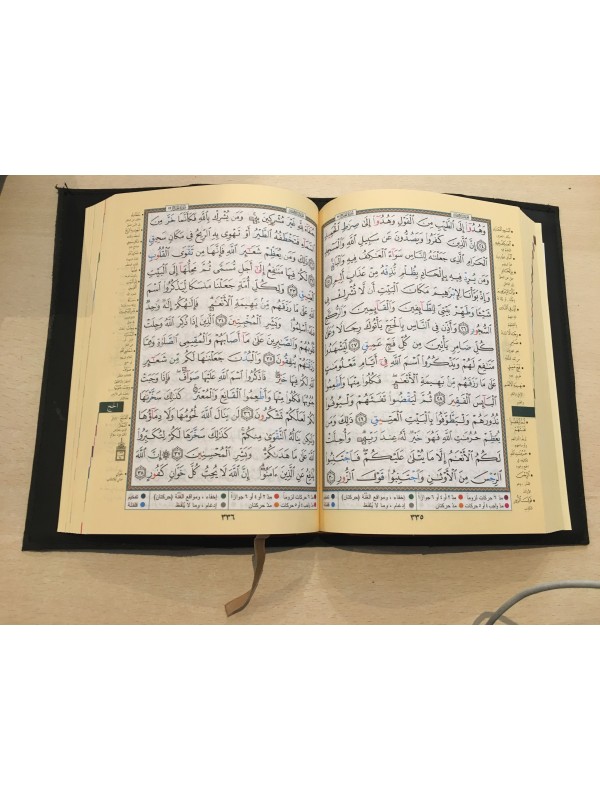 وَهُدُوٓا۟ إِلَى ٱلطَّيِّبِ مِنَ ٱلْقَوْلِ وَهُدُوٓا۟ إِلَىٰ صِرَٰطِ ٱلْحَمِيدِ
۝٢٤ إِنَّ ٱلَّذِينَ كَفَرُوا۟ وَيَصُدُّونَ عَن سَبِيلِ ٱللَّهِ وَٱلْمَسْجِدِ
ٱلْحَرَامِ ٱلَّذِى جَعَلْنَٰهُ لِلنَّاسِ سَوَآءً ٱلْعَٰكِفُ فِيهِ وَٱلْبَادِ
وَمَن يُرِدْ فِيهِ بِإِلْحَادٍۭ بِظُلْمٍ نُّذِقْهُ مِنْ عَذَابٍ أَلِيمٍ ۝٢٥
وَإِذْ بَوَّأْنَا لِإِبْرَٰهِيمَ مَكَانَ ٱلْبَيْتِ أَن لَّا تُشْرِكْ بِى
شَيْـًٔا وَطَهِّرْ بَيْتِىَ لِلطَّآئِفِينَ وَٱلْقَآئِمِينَ وَٱلرُّكَّعِ
ٱلسُّجُودِ ۝٢٦ وَأَذِّن فِى ٱلنَّاسِ بِٱلْحَجِّ يَأْتُوكَ رِجَالًا وَعَلَىٰ
كُلِّ ضَامِرٍ يَأْتِينَ مِن كُلِّ فَجٍّ عَمِيقٍ ۝٢٧ لِّيَشْهَدُوا۟
مَنَٰفِعَ لَهُمْ وَيَذْكُرُوا۟ ٱسْمَ ٱللَّهِ فِىٓ أَيَّامٍ مَّعْلُومَٰتٍ
عَلَىٰ مَا رَزَقَهُم مِّنۢ بَهِيمَةِ ٱلْأَنْعَٰمِ ۖ فَكُلُوا۟ مِنْهَا وَأَطْعِمُوا۟
ٱلْبَآئِسَ ٱلْفَقِيرَ ۝٢٨ ثُمَّ لْيَقْضُوا۟ تَفَثَهُمْ وَلْيُوفُوا۟
نُذُورَهُمْ وَلْيَطَّوَّفُوا۟ بِٱلْبَيْتِ ٱلْعَتِيقِ ۝٢٩ ذَٰلِكَ وَمَن
يُعَظِّمْ حُرُمَٰتِ ٱللَّهِ فَهُوَ خَيْرٌ لَّهُۥ عِندَ رَبِّهِۦ ۗ وَأُحِلَّتْ
لَكُمُ ٱلْأَنْعَٰمُ إِلَّا مَا يُتْلَىٰ عَلَيْكُمْ ۖ فَٱجْتَنِبُوا۟
ٱلرِّجْسَ مِنَ ٱلْأَوْثَٰنِ وَٱجْتَنِبُوا۟ قَوْلَ ٱلزُّورِ ۝٣٠
٣٣٥
لِلَّهِ غَيْرَ مُشْرِكِينَ بِهِۦ ۚ وَمَن يُشْرِكْ بِٱللَّهِ فَكَأَنَّمَا خَرَّ مِنَ
فَتَخْطَفُهُ ٱلطَّيْرُ أَوْ تَهْوِى بِهِ ٱلرِّيحُ فِى مَكَانٍ سَحِيقٍ
۝٣١ ذَٰلِكَ وَمَن يُعَظِّمْ شَعَٰٓئِرَ ٱللَّهِ فَإِنَّهَا مِن تَقْوَى ٱلْقُلُوبِ
۝٣٢ لَكُمْ فِيهَا مَنَٰفِعُ إِلَىٰٓ أَجَلٍ مُّسَمًّى ثُمَّ مَحِلُّهَآ إِلَى ٱلْبَيْتِ
ٱلْعَتِيقِ ۝٣٣ وَلِكُلِّ أُمَّةٍ جَعَلْنَا مَنسَكًا لِّيَذْكُرُوا۟ ٱسْمَ
ٱللَّهِ عَلَىٰ مَا رَزَقَهُم مِّنۢ بَهِيمَةِ ٱلْأَنْعَٰمِ ۗ فَإِلَٰهُكُمْ إِلَٰهٌ
أَسْلِمُوا۟ ۗ وَبَشِّرِ ٱلْمُخْبِتِينَ ۝٣٤ ٱلَّذِينَ إِذَا ذُكِرَ ٱللَّهُ وَجِلَتْ
قُلُوبُهُمْ وَٱلصَّٰبِرِينَ عَلَىٰ مَآ أَصَابَهُمْ وَٱلْمُقِيمِى ٱلصَّلَوٰةِ وَمِمَّا
رَزَقْنَٰهُمْ يُنفِقُونَ ۝٣٥ وَٱلْبُدْنَ جَعَلْنَٰهَا لَكُم مِّن شَعَٰٓئِرِ
لَكُمْ فِيهَا خَيْرٌ ۖ فَٱذْكُرُوا۟ ٱسْمَ ٱللَّهِ عَلَيْهَا صَوَآفَّ ۖ فَإِذَا وَجَبَتْ
جُنُوبُهَا فَكُلُوا۟ مِنْهَا وَأَطْعِمُوا۟ ٱلْقَانِعَ وَٱلْمُعْتَرَّ ۚ كَذَٰلِكَ سَخَّرْنَٰهَا
لَكُمْ لَعَلَّكُمْ تَشْكُرُونَ ۝٣٦ لَن يَنَالَ ٱللَّهَ لُحُومُهَا وَلَا دِمَآؤُهَا
وَلَٰكِن يَنَالُهُ ٱلتَّقْوَىٰ مِنكُمْ ۚ كَذَٰلِكَ سَخَّرَهَا لَكُمْ لِتُكَبِّرُوا۟
ٱللَّهَ عَلَىٰ مَا هَدَىٰكُمْ ۗ وَبَشِّرِ ٱلْمُحْسِنِينَ ۝٣٧ ۞ إِنَّ ٱللَّهَ
يُدَٰفِعُ عَنِ ٱلَّذِينَ ءَامَنُوٓا۟ ۗ إِنَّ ٱللَّهَ لَا يُحِبُّ كُلَّ خَوَّانٍ كَفُورٍ ۝٣٨
٣٣٦